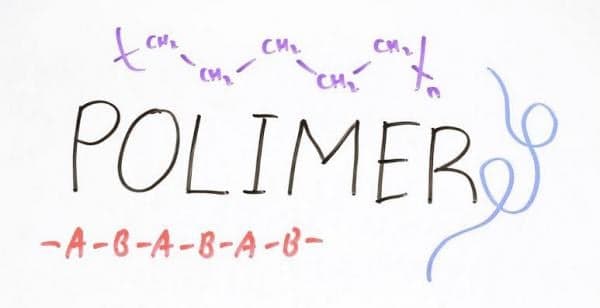 CH₂ CH₂ CH₂ CH₂ CH₂ n
POLIMER
-A-B-A-B-A-B-